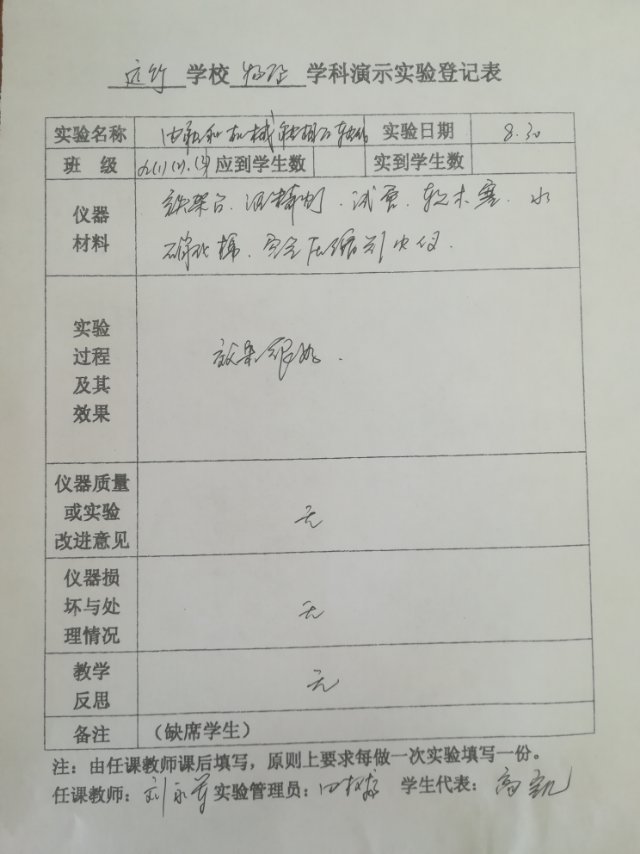 学校 物理 学科演示实验登记表
实验名称 内能和机械能 实验日期 8.30
班 级 九(1)(2).(3) 应到学生数 实到学生数
仪器材料 铁架台、酒精灯、试管、软木塞、水
硝化棉、空气压缩引火仪.
实验过程及其效果 效果很好.
仪器质量或实验改进意见 无
仪器损坏与处理情况 无
教学反思 无
备注 (缺席学生)
注：由任课教师课后填写，原则上要求每做一次实验填写一份。
任课教师：刘永 实验管理员： 学生代表：高凯